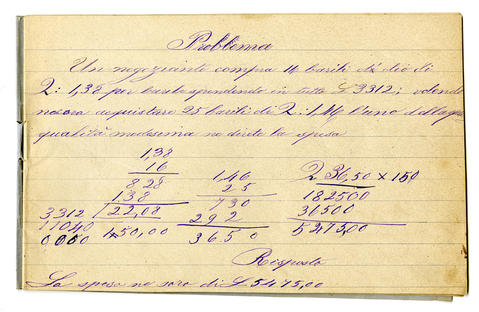 Problema
Un negoziante compra 16 barili di olio di
Q: 1,38 per barile spendendo in tutto £ 3312; volendo
ne ora acquistare 25 barili di Q: 1,46 l'uno della
qualità medesima ne direte la spesa
1,38
16
828
138
22,08
3312
11040
0000
150,00
146
25
730
292
3650
36,50 × 150
182500
36500
5475,00
Risposta
La spesa ne sarà di £ 5475,00